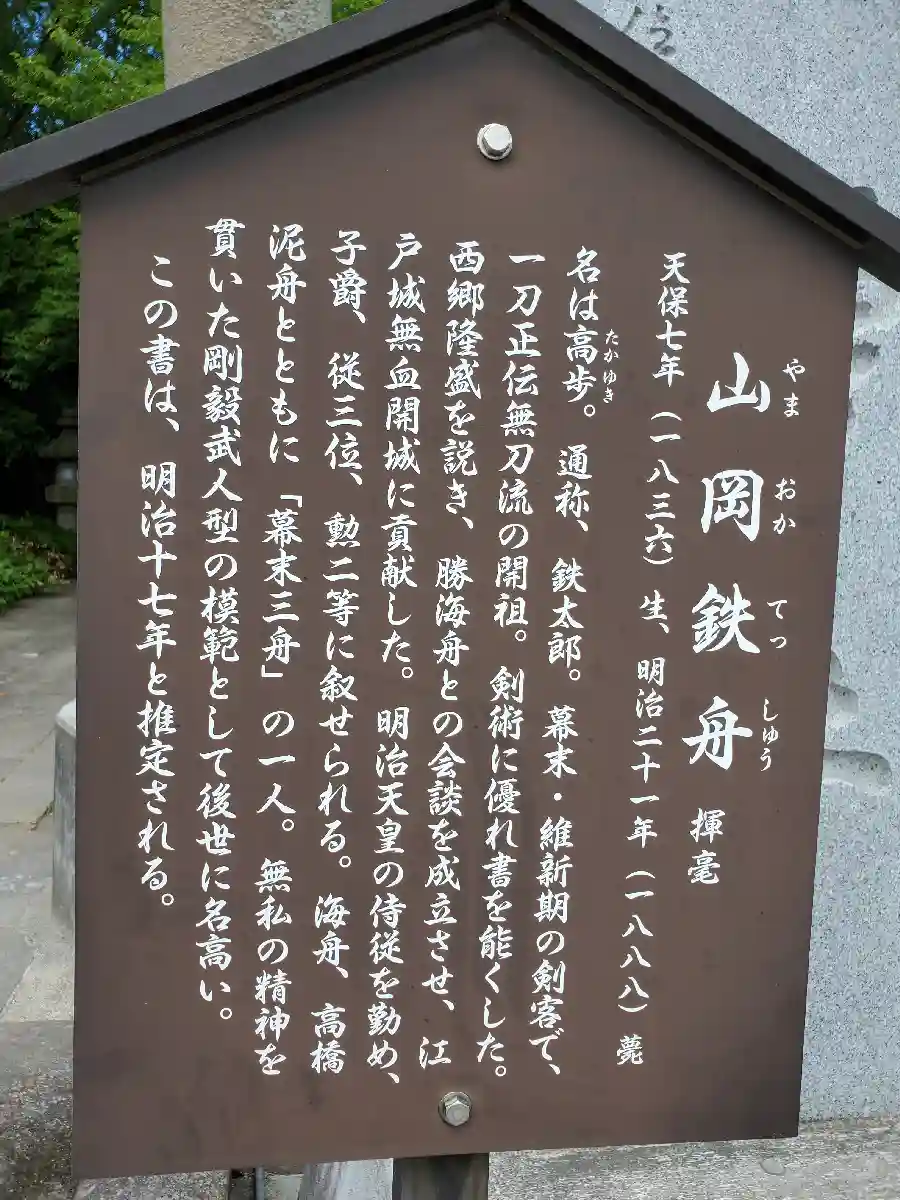 山岡鉄舟 揮毫
やま おか てつ しゅう
天保七年（一八三六）生、明治二十一年（一八八八）薨
名は高歩。通称、鉄太郎。幕末・維新期の剣客で、
たかゆき
一刀正伝無刀流の開祖。剣術に優れ書を能くした。
西郷隆盛を説き、勝海舟との会談を成立させ、江
戸城無血開城に貢献した。明治天皇の侍従を勤め、
子爵、従三位、勲二等に叙せられる。海舟、高橋
泥舟とともに「幕末三舟」の一人。無私の精神を
貫いた剛毅武人型の模範として後世に名高い。
この書は、明治十七年と推定される。